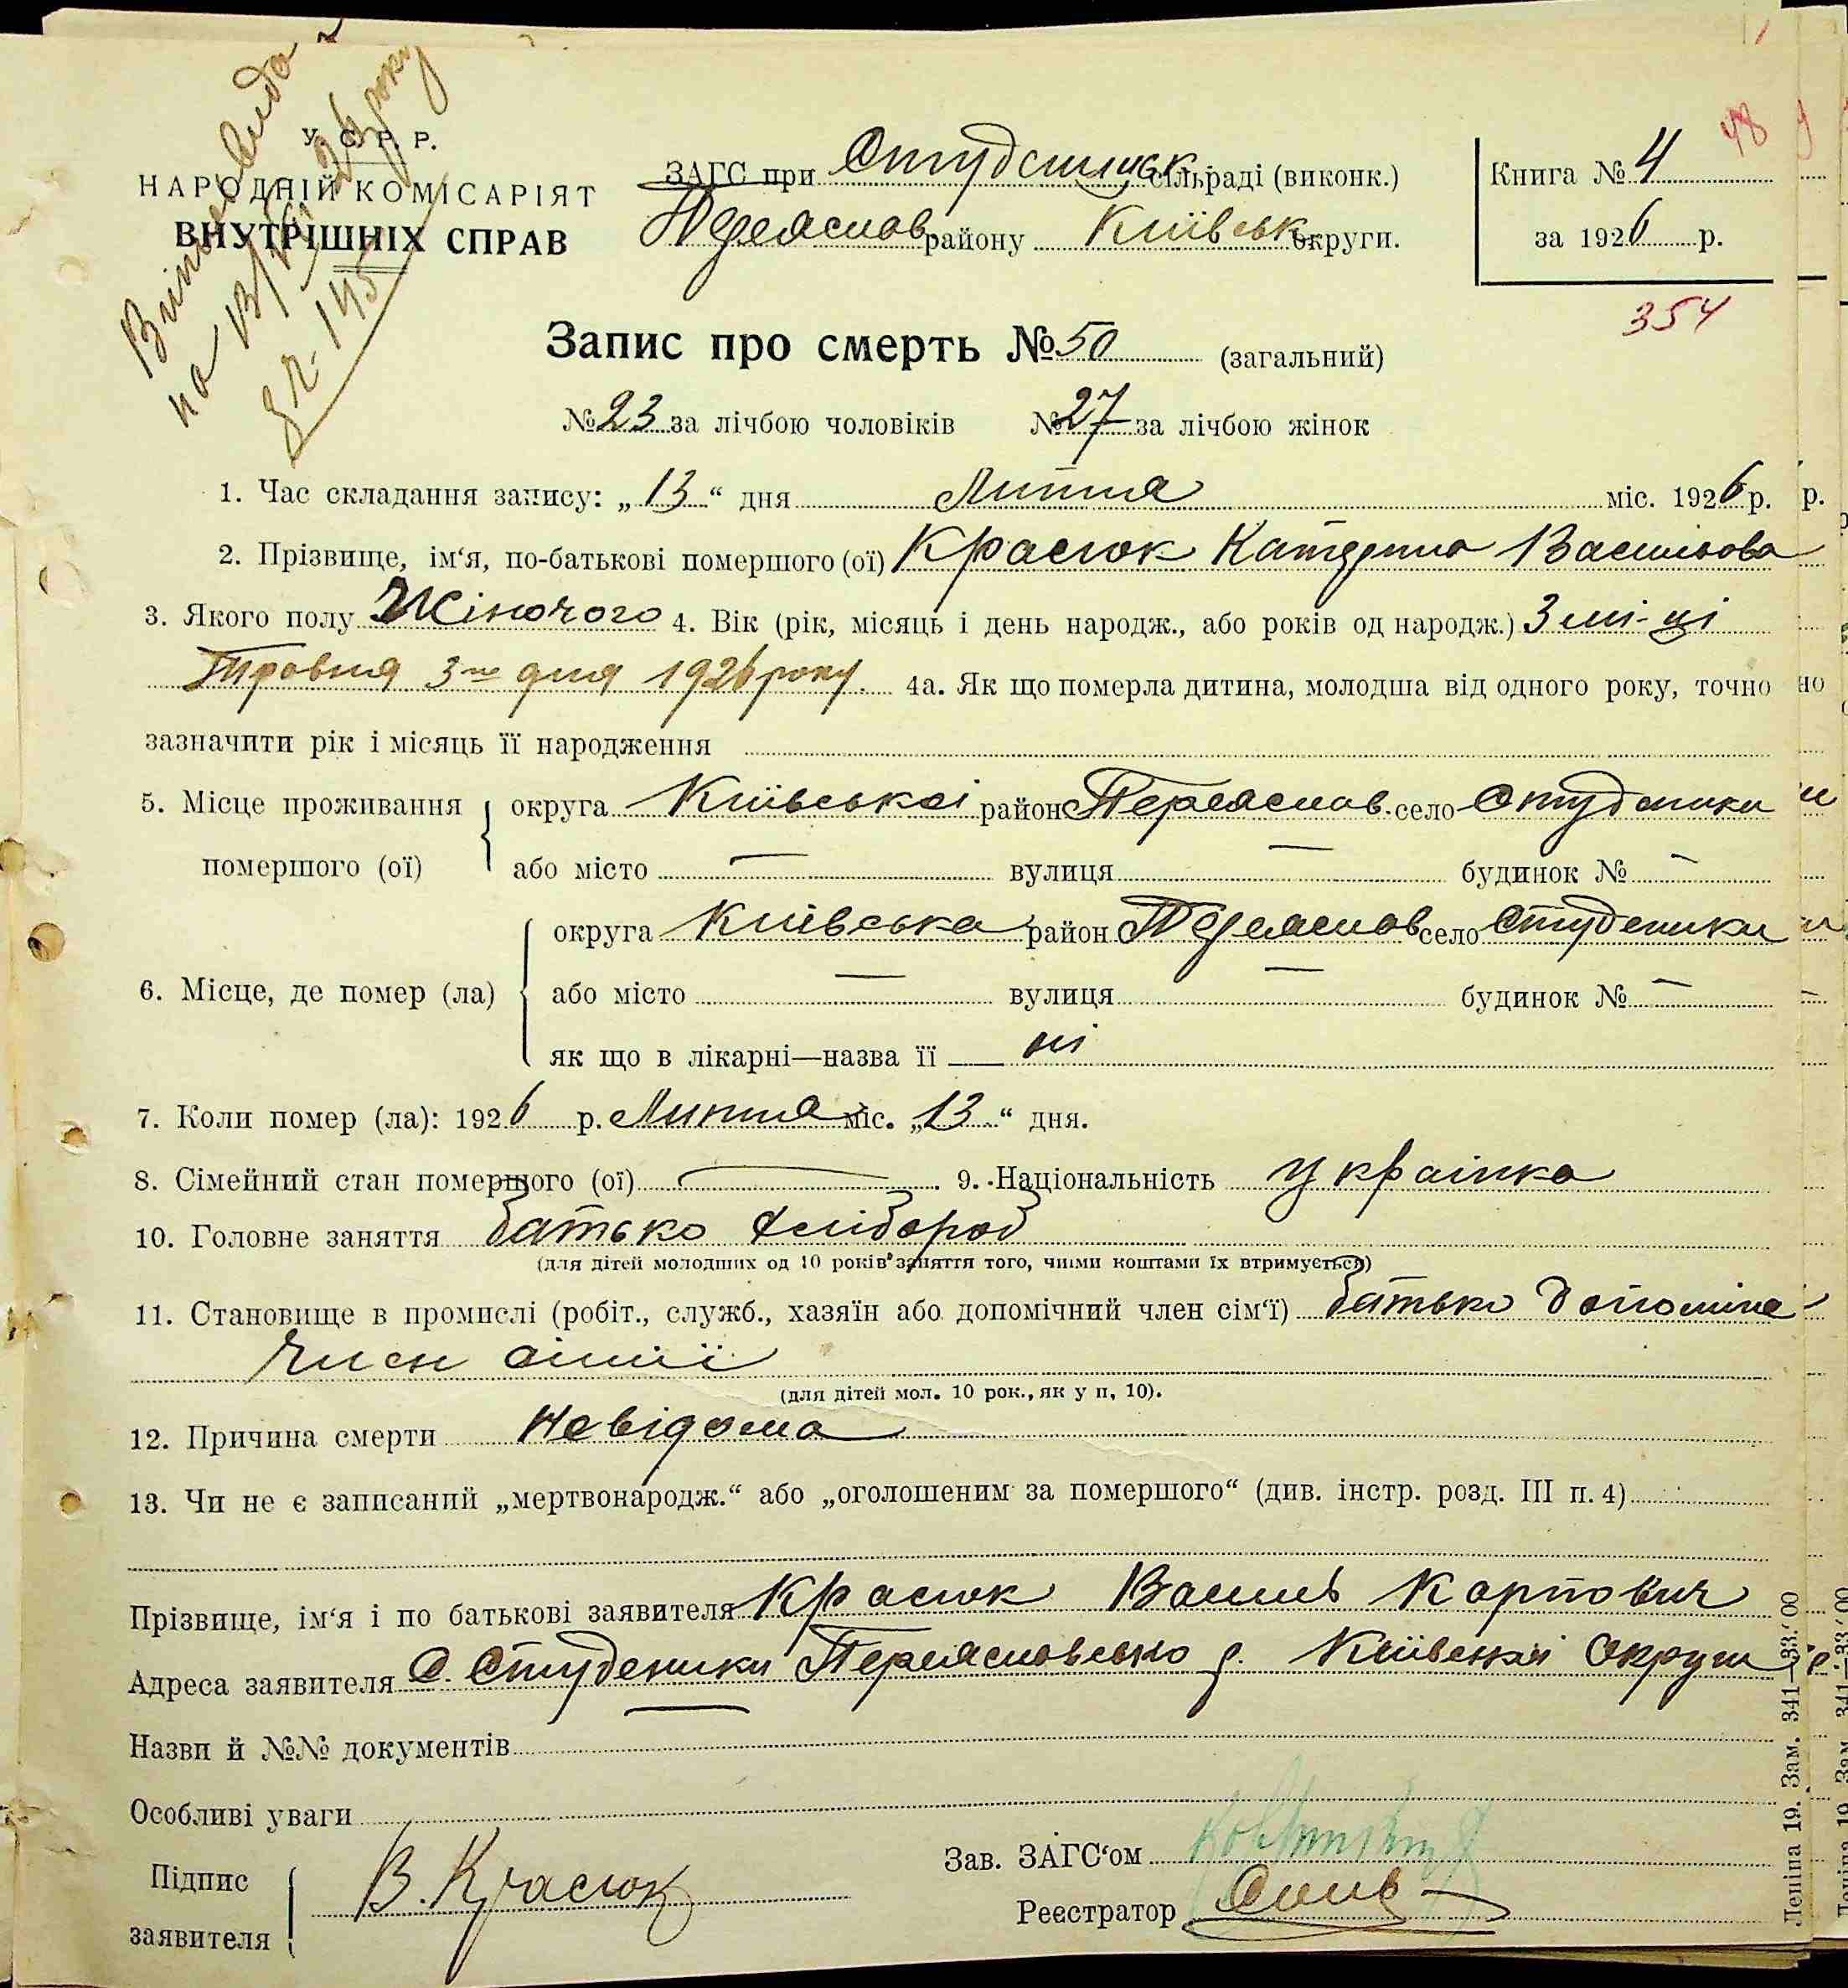 У. С. Р. Р.
НАРОДНІЙ КОМІСАРІЯТ
ВНУТРІШНІХ СПРАВ
на 13/VII 26 року
145
ЗАГС при Студениц. сільраді (виконк.)
Переяслав району Київськ округи.
Книга № 4
за 1926 р.
48
354
Запис про смерть № 50 (загальний)
№ 23 за лічбою чоловіків № 27 за лічбою жінок
1. Час складання запису: „13“ дня Липня міс. 1926 р.
2. Прізвище, ім‘я, по-батькові помершого (ої) Красюк Катерина Васильова
3. Якого полу Жіночого 4. Вік (рік, місяць і день народж., або років од народж.) 3 мі-ці
Травня 3го дня 1926 року. 4а. Як що померла дитина, молодша від одного року, точно
зазначити рік і місяць її народження
5. Місце проживання помершого (ої) округа Київської район Переяслав. село Студеники
або місто — вулиця — будинок № —
6. Місце, де помер (ла) округа Київська район Переяслав село Студеники
або місто — вулиця — будинок № —
як що в лікарні—назва її ні
7. Коли помер (ла): 1926 р. Липня міс. „13“ дня.
8. Сімейний стан померщого (ої) — 9. Національність Українка
10. Головне заняття батько хлібороб
(для дітей молодших од 10 років заняття того, чиїми коштами їх втримується)
11. Становище в промислі (робіт., служб., хазяїн або допомічний член сім‘ї) батько допоміча
член сімїї
(для дітей мол. 10 рок., як у п. 10).
12. Причина смерти Невідома
13. Чи не є записаний „мертвонародж.“ або „оголошеним за помершого“ (див. інстр. розд. III п. 4)
Прізвище, ім‘я і по батькові заявителя Красюк Василь Карпович
Адреса заявителя С. Студеники Переяславсько р. Київської Округи
Назви й №№ документів
Особливі уваги
Підпис заявителя В. Красюк
Зав. ЗАГС‘ом
Реєстратор
Леніна 19. Зам. 341—33.00